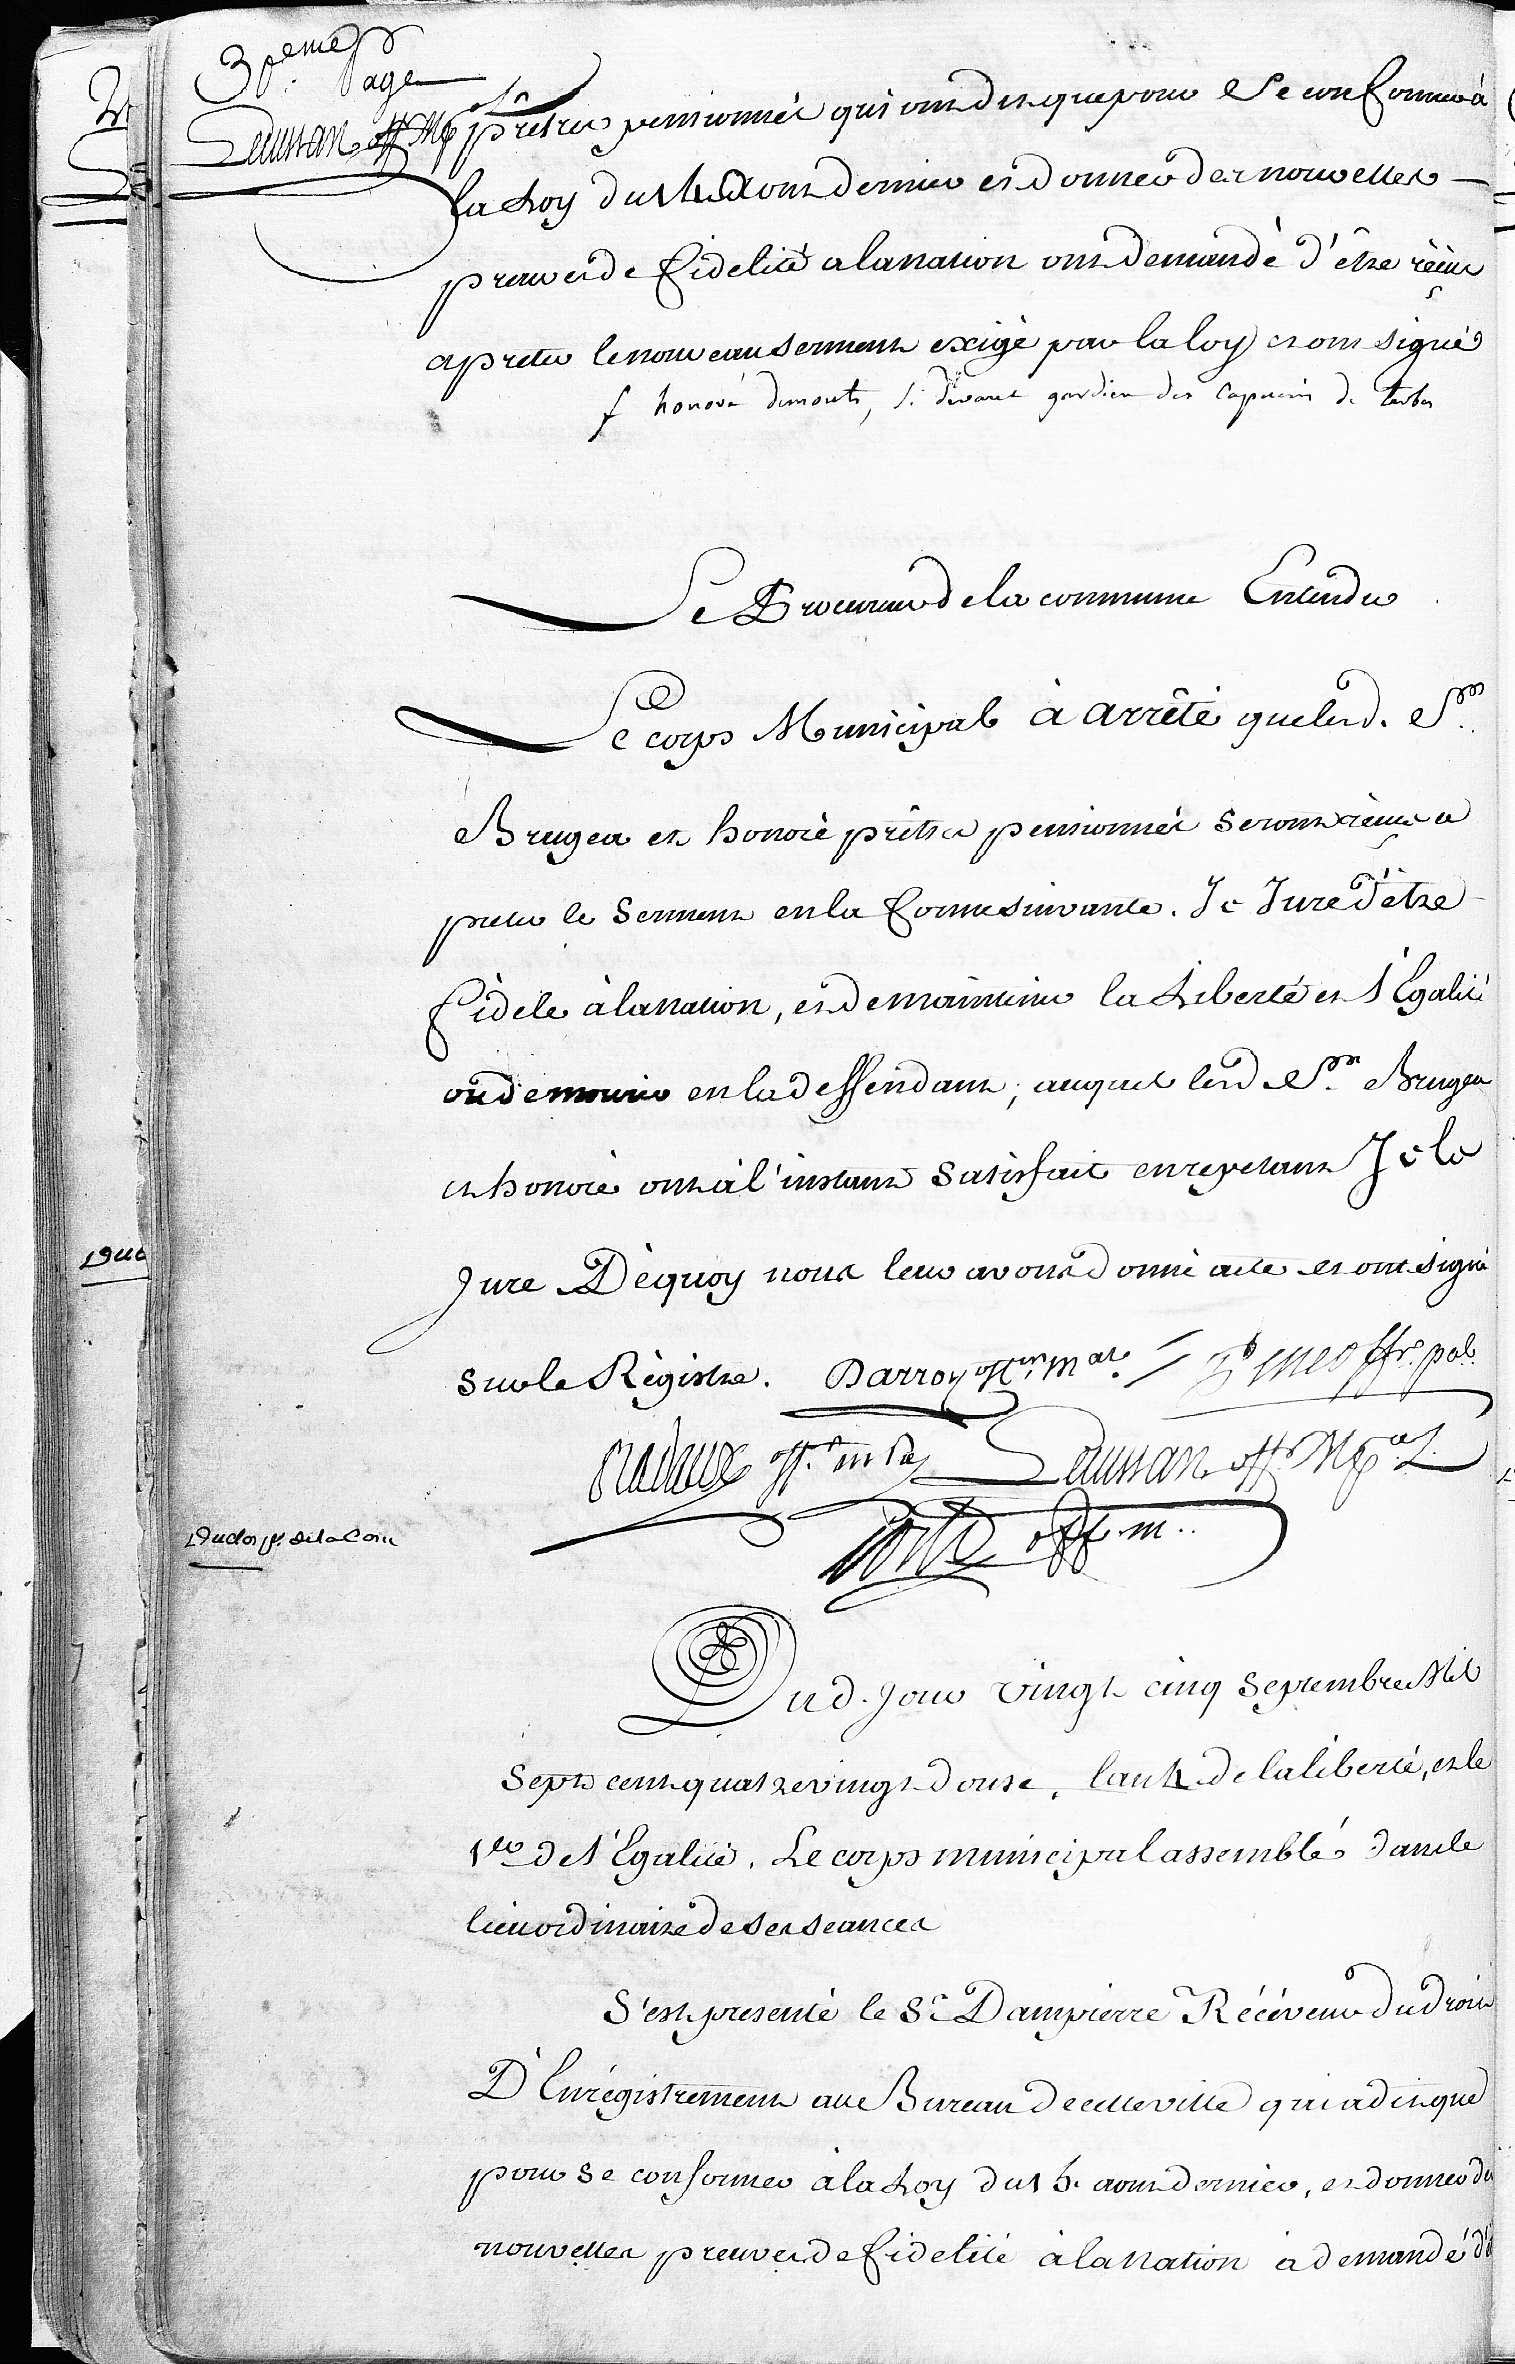 30.eme Page
Lecussan off. Mpal
prêtres pensionnés qui ont dit que pour Se conformer à
la Loy du 15 Aout dernier et donner des nouvelles
preuves de fidelité a la nation ont demandé d'être réçus
a preter le nouveau serment exigé par la loy et ont signé
f honoré , ci devant gardien des capucins de tarbes
Le Procureur de la commune Entendu
Le corps Municipal à arrêté que lesd. Srs.
Bruges et honoré prêtres pensionnés seront réçus a
preter le serment en la forme suivante. Je Jure d'être
fidele à la nation, et de maintenir la Liberté et l'Egalité
ou de mourir en la deffendant; auquel lesd. Srs. Bruges
et honoré ont à l'instant satisfait en repetant Je le
Jure Dèquoy nous leur avons donné acte et ont signé
sur le Règistre. Darroy offr. mal. offr. pal.
off. mpal Lecussan off. Mpal
Porte off. m..
Duclos pr. de la Com
Dud. jour vingt cinq septembre Mil
sept cent quatre vingt douse, l'an 4 de la liberté, et le
1er de l'Egalité. Le corps municipal assemblé dans le
lieu ordinaire de ses seances
S'est presenté le Sr. Dampierre Récéveur du droit
D'Enrégistrement au Bureau de cette ville qui a dit que
pour se conformer à la Loy du 15. aout dernier, et donner de
nouvelles preuves de fidelité à la nation à demandé d'ê